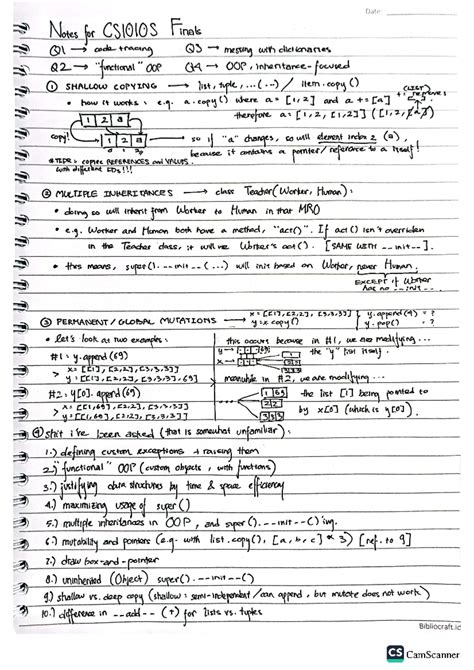 Date:
Notes for CS1010S Finals
Q1 → code tracing Q3 → messing with dictionaries
Q2 → "functional" OOP Q4 → OOP, inheritance-focused
① SHALLOW COPYING → list, tuple, ... (--) / item.copy()
• how it works: e.g. a.copy() where a = [1,2] and a += [a]
(LIST)
therefore a = [1, 2, [1,2]]
1 2
copy!
1 2
0 1 2
so if "a" changes, so will element index 2 (a),
because it contains a pointer/reference to a itself!
copies REFERENCES and VALUES
with different IDs!!!
② MULTIPLE INHERITANCES → class Teacher(Worker, Human):
• doing so will inherit from Worker to Human in that MRO
• e.g. Worker and Human both have a method, "act()". If act() isn't overriden
in the Teacher class, it will use Worker's act(). [SAME WITH --init--].
• this means, super().--init--(...) will init based on Worker, never Human.
EXCEPT if Worker
has no --init--
③ PERMANENT/GLOBAL MUTATIONS → x = [[1],[2,2],[3,3,3]] y.append(4) = ?
y = x.copy() y.pop() : ?
• let's look at two examples:
#1: y.append(69)
> x = [[1], [2,2], [3,3,3]]
y = [[1], [2,2], [3,3,3], 69]
#2: y[0].append(69)
> x = [[1,69], [2,2], [3,3,3]]
y = [[1,69], [2,2], [3,3,3]]
this occurs because in #1, we are modifying...
the "y" list itself.
meanwhile in #2, we are modifying...
1 69
2 2
3 3 3
the list [1] being pointed to
by x[0] (which is y[0].
④ shit i've been asked (that is somewhat unfamiliar):
1.) defining custom exceptions + raising them
2.) "functional" OOP (custom objects, with functions)
3.) justifying data structures by time & space efficiency
4.) maximizing usage of super()
5.) multiple inheritances in OOP, and super().--init--()'ing.
6.) mutability and pointers (e.g. with list.copy(), [a,b,c] * 3) [ref. to 9]
7.) draw box-and-pointer
8.) uninherited (Object) super().--init--()
9.) shallow vs. deep copy (shallow: semi-independent / can append, but mutate does not work)
10.) difference in --add-- (+) for lists vs. tuples
Bibliocraft.id
CS CamScanner